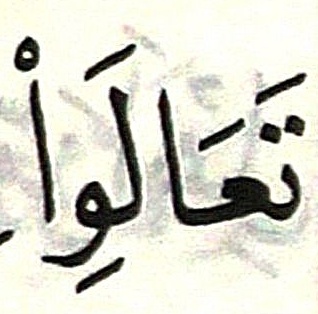 تَعَالَوِاْ